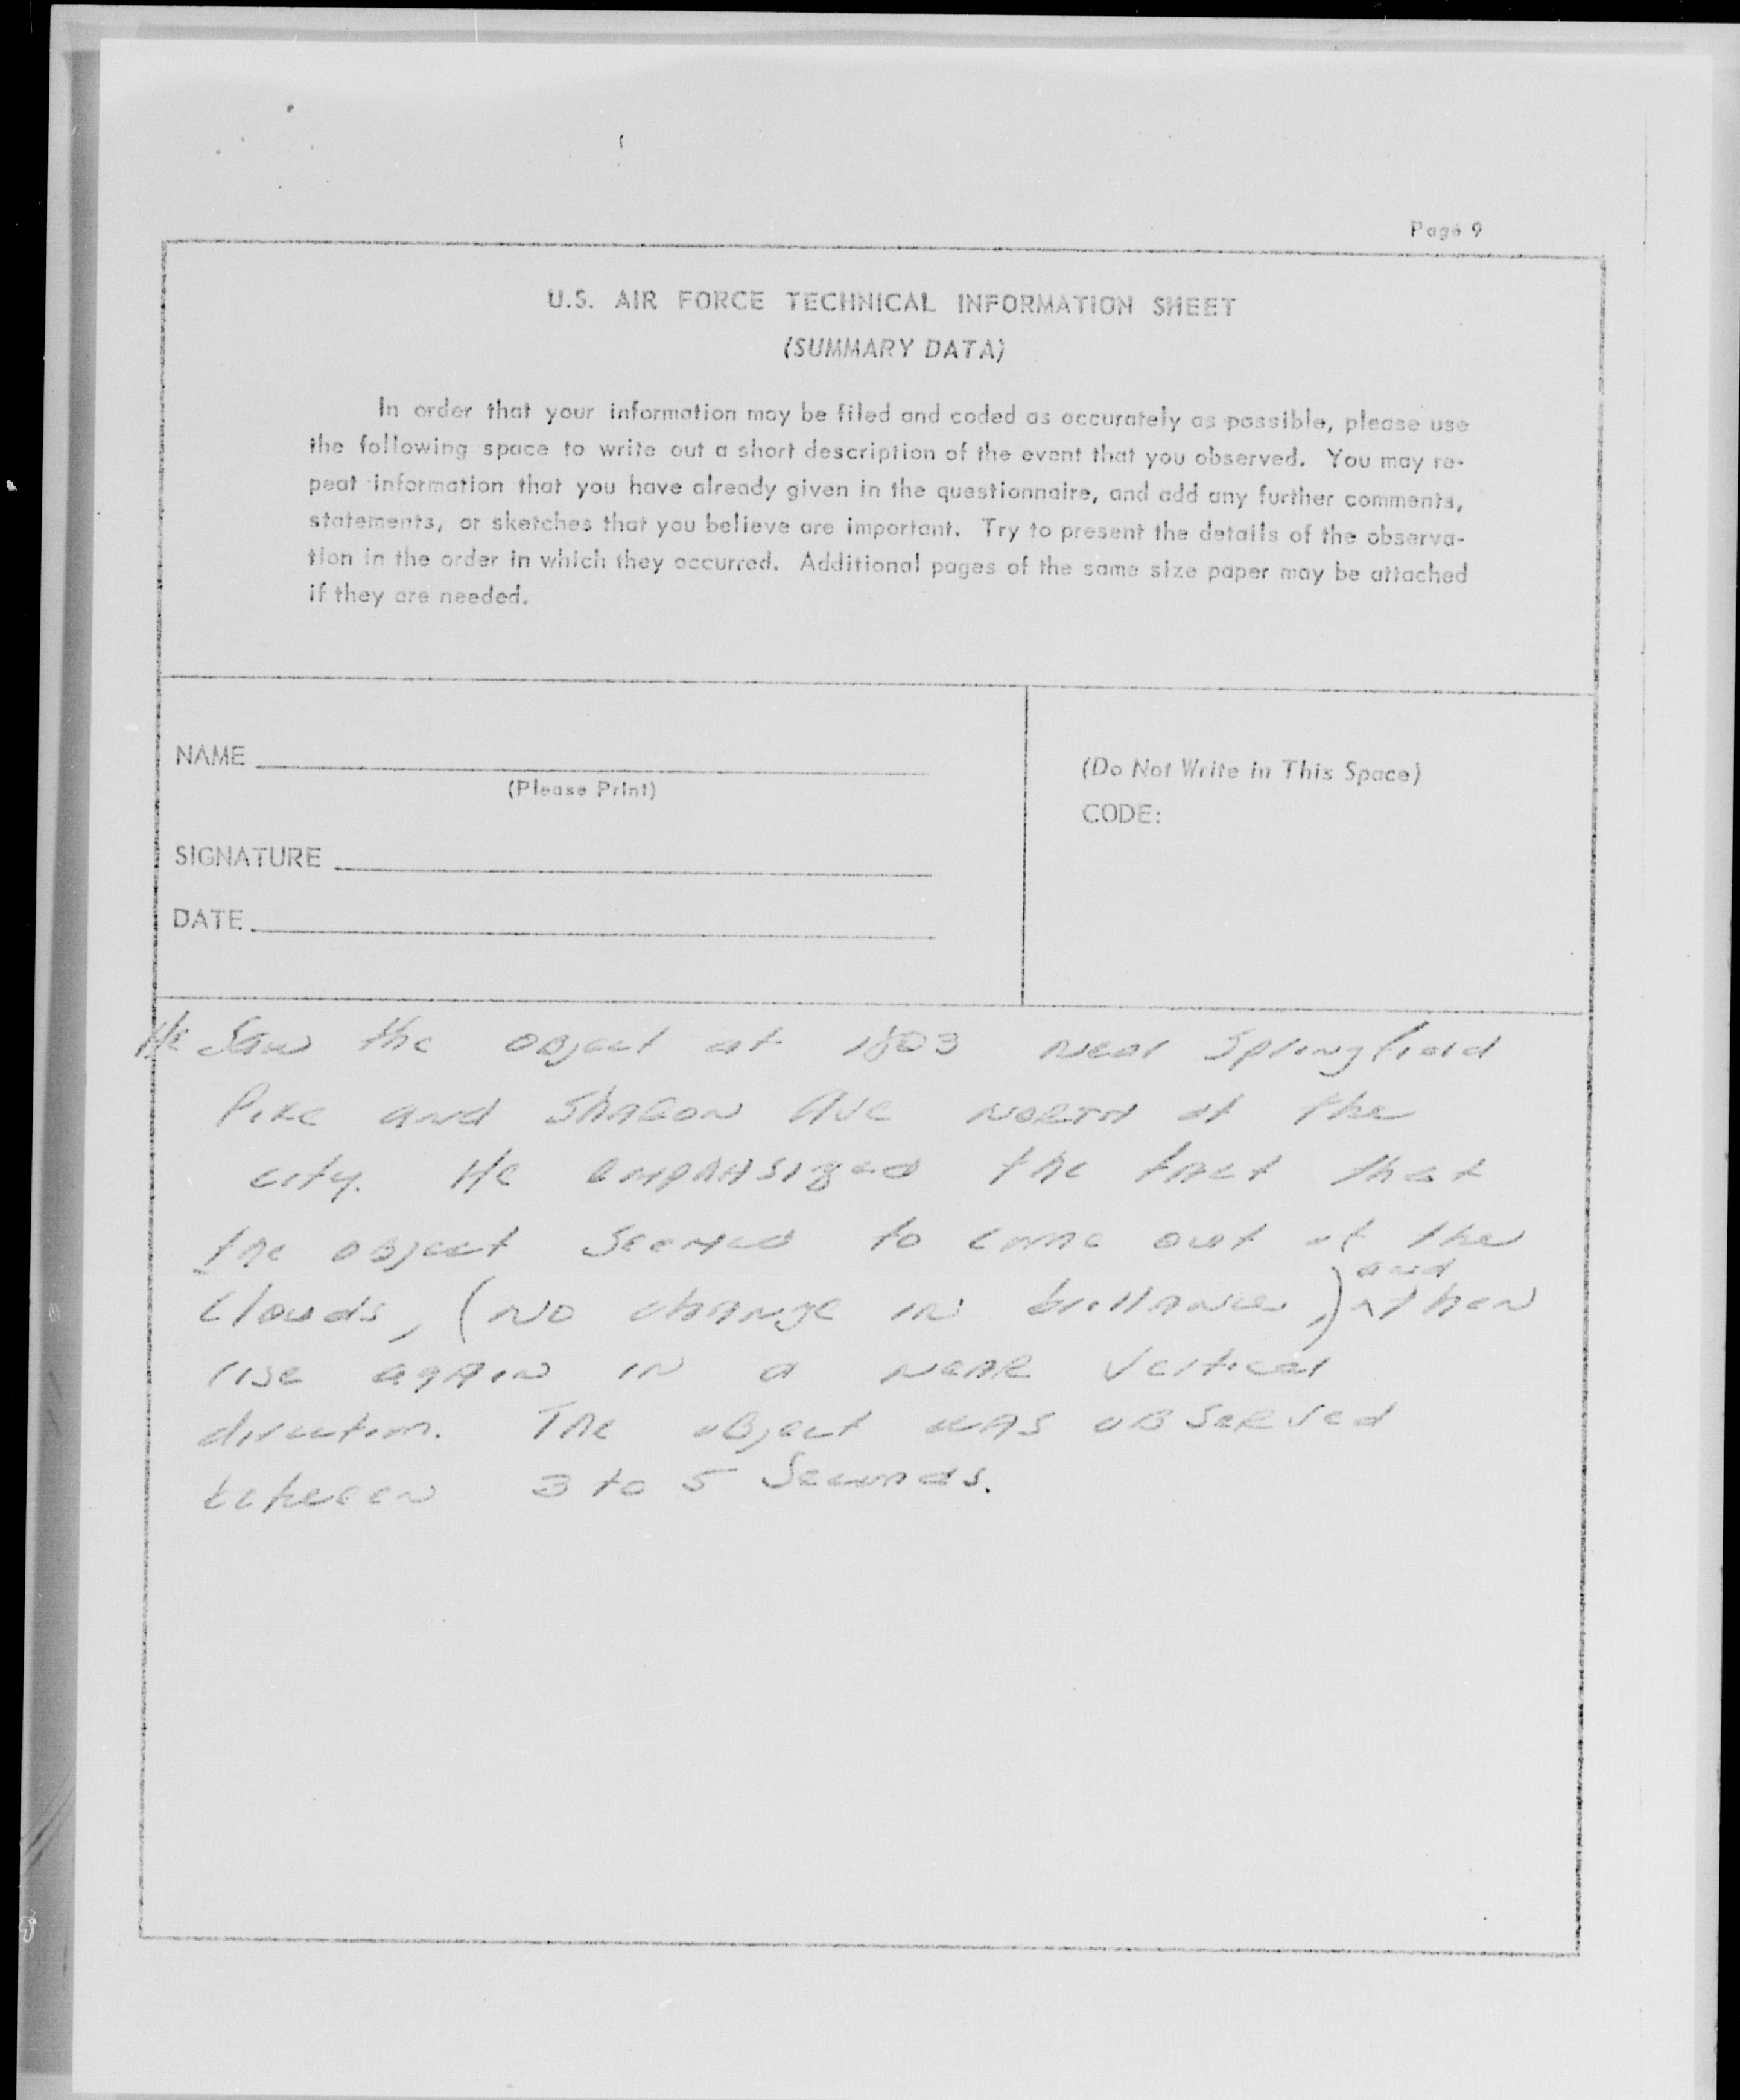 Page 9
U.S. AIR FORCE TECHNICAL INFORMATION SHEET
(SUMMARY DATA)
In order that your information may be filed and coded as accurately as possible, please use
the following space to write out a short description of the event that you observed. You may re-
peat information that you have already given in the questionnaire, and add any further comments,
statements, or sketches that you believe are important. Try to present the details of the observa-
tion in the order in which they occurred. Additional pages of the same size paper may be attached
if they are needed.
NAME
(Please Print)
SIGNATURE
DATE
(Do Not Write in This Space)
CODE:
He saw the object at 1803 near Springfield
Pike and Sharon Ave north of the
city. He emphasized the fact that
the object seemed to come out of the
clouds, (no change in brillance,) and then
rise again in a near vertical
direction. The object was observed
between 3 to 5 seconds.